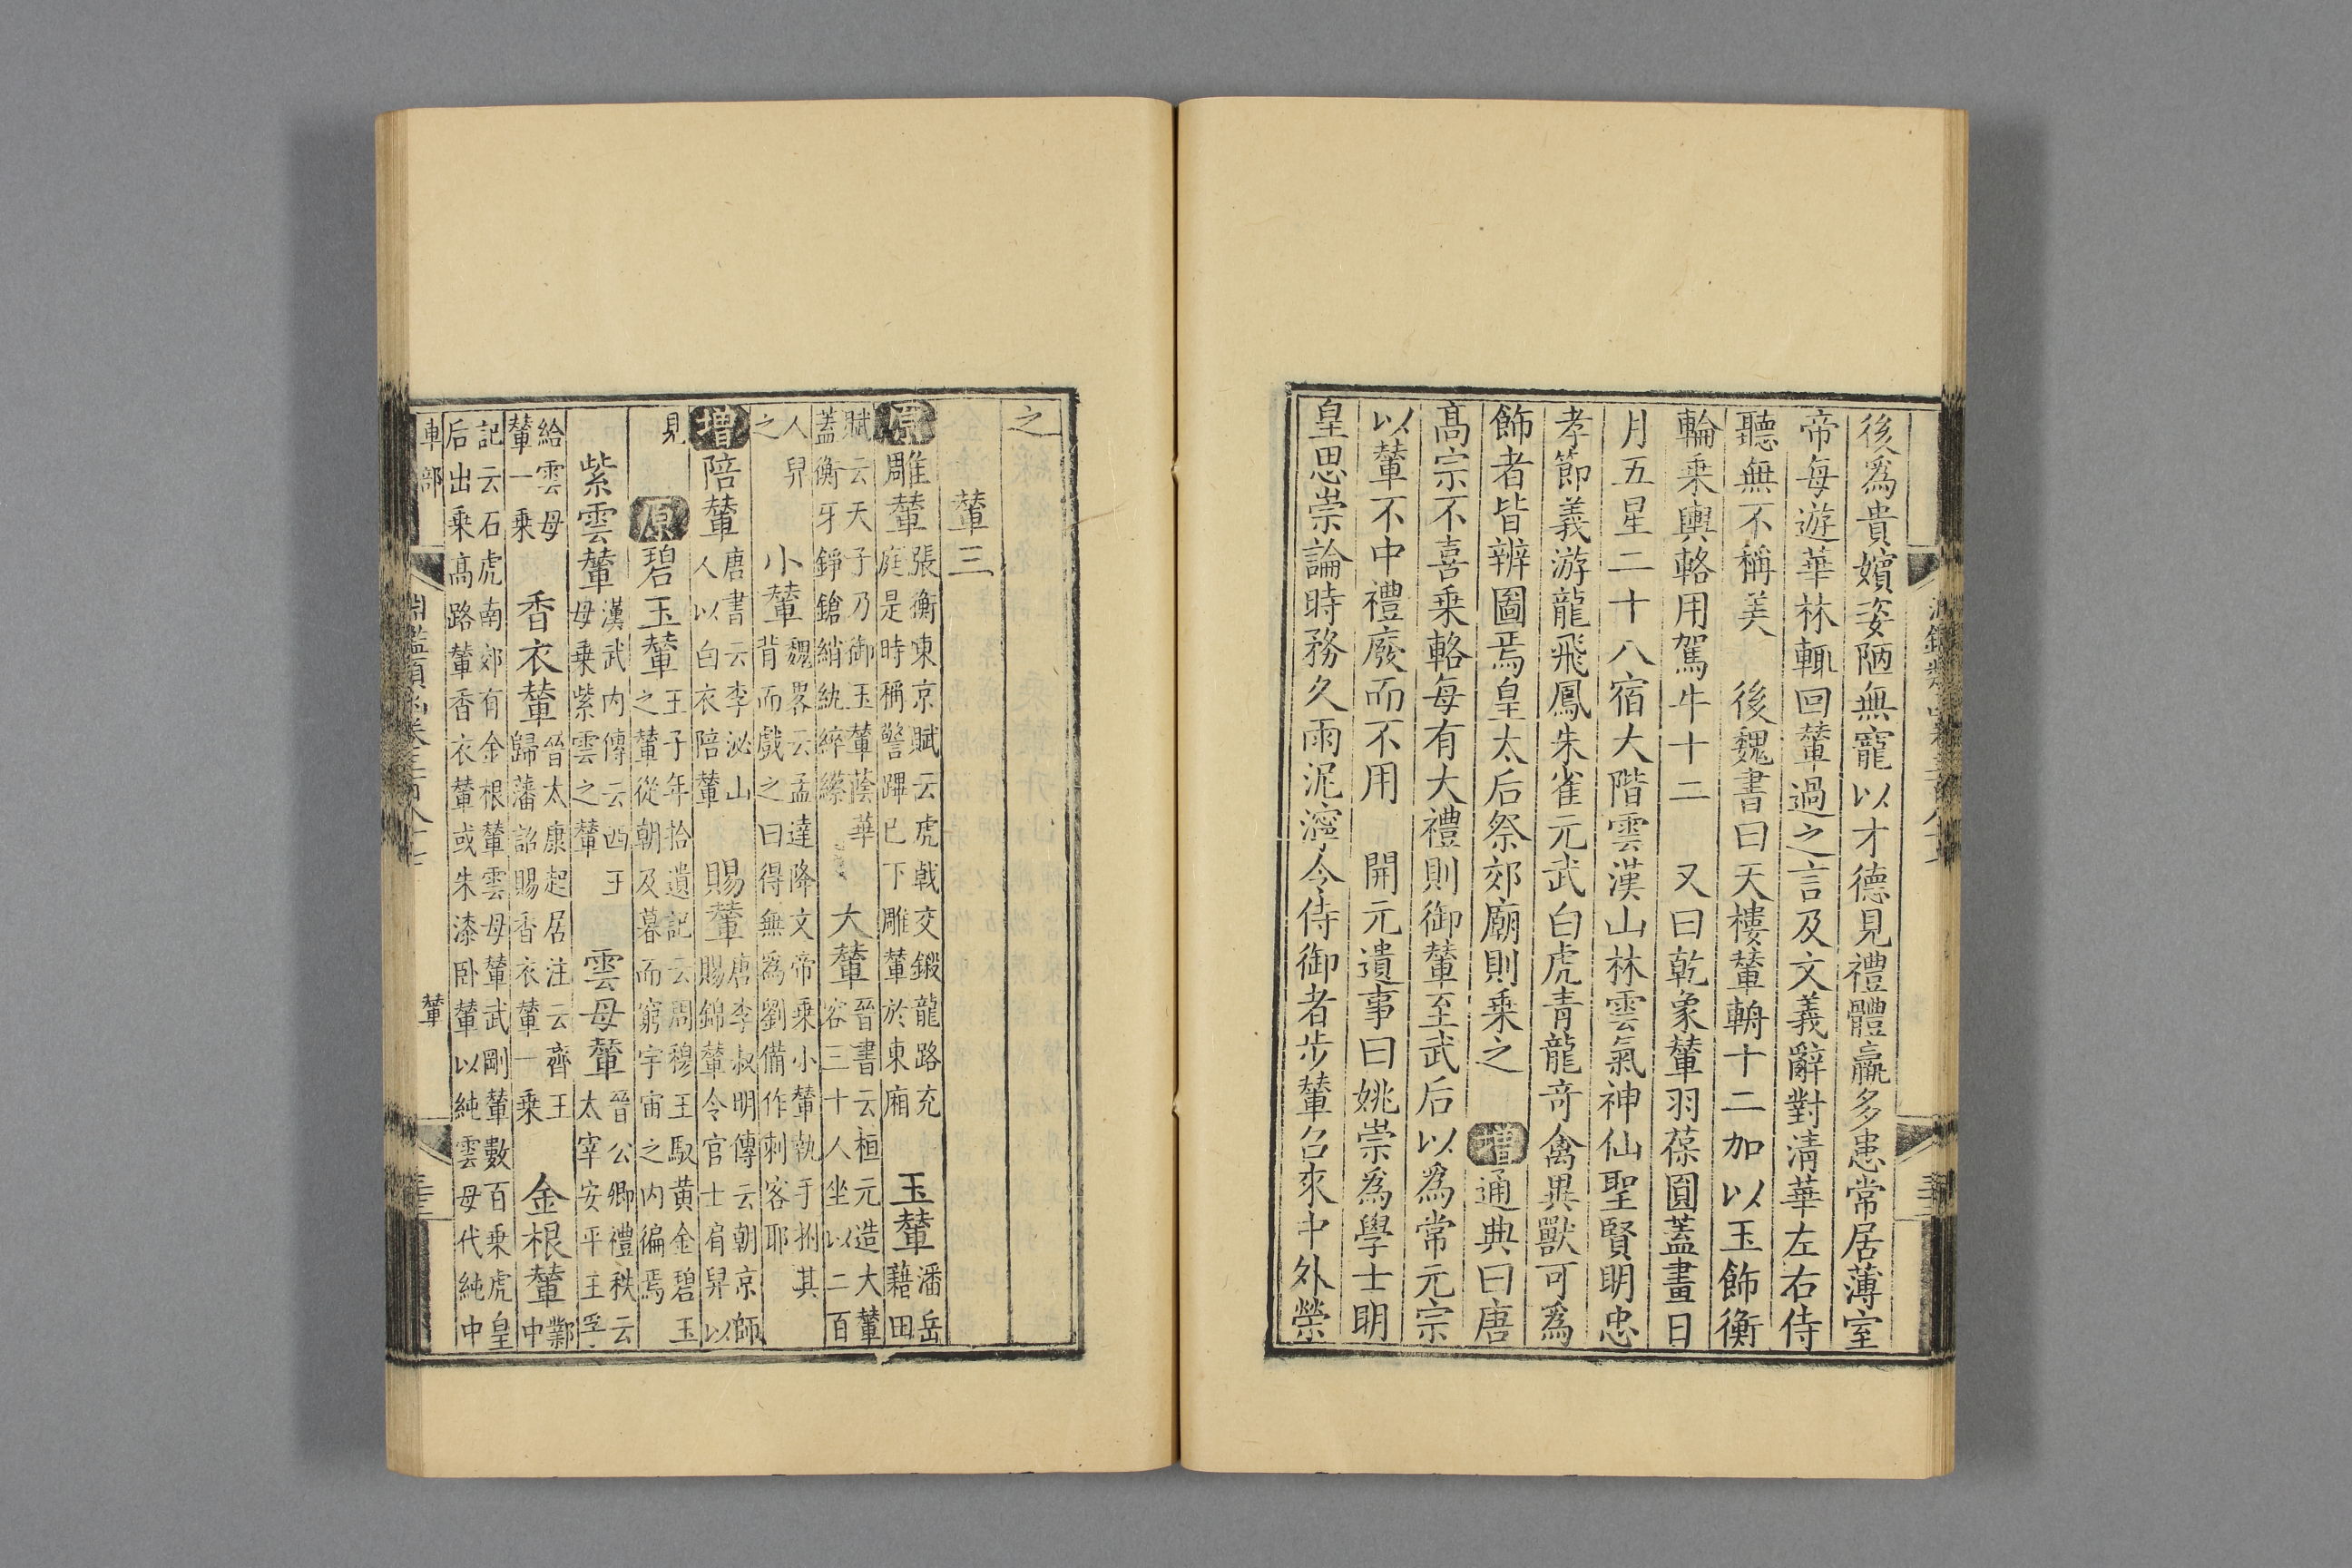 後爲貴嬪姿陋無寵以才德見禮體羸多患常居薄室
帝每遊華林輒回輦過之言及文義辭對清華左右侍
聽無不稱美　後魏書曰天樓輦輈十二加以玉飾衡
輪乗輿輅用駕牛十二　又曰乾象輦羽葆圓蓋畫日
月五星二十八宿大階雲漢山林雲氣神仙聖賢明忠
孝節義游龍飛鳳朱雀元武白虎青龍竒禽異獸可爲
飾者皆辨圖焉皇太后祭郊廟則乗之　增通典曰唐
髙宗不喜乗輅每有大禮則御輦至武后以爲常元宗
以輦不中禮廢而不用　開元遺事曰姚崇爲學士明
皇思崇論時務久雨泥濘令侍御者步輦召來中外榮
之
輦三
原雕輦張衡東京賦云虎戟交鎩龍路充
庭是時稱警蹕已下雕輦於東廂　玉輦潘岳
藉田
賦云天子乃御玉輦蔭華
蓋衡牙錚鎗綃紈綷縩　大輦晉書云桓元造大輦
容三十人坐以二百
人舁
之　小輦魏畧云孟達降文帝乗小輦執手拊其
背而戲之曰得無爲劉備作刺客耶
增陪輦唐書云李泌山
人以白衣陪輦　賜輦唐李叔明傳云朝京師
賜錦輦令官士肩舁以
見　原碧玉輦王子年拾遺記云周穆王馭黃金碧玉
之輦從朝及暮而窮宇宙之内徧焉
紫雲輦漢武内傳云西王
母乗紫雲之輦　雲母輦晉公卿禮秩云
太宰安平王孚
給雲母
輦一乗　香衣輦晉太康起居注云齊王
歸藩詔賜香衣輦一乗　金根輦鄴
中
記云石虎南郊有金根輦雲母輦武剛輦數百乗虎皇
后出乗髙路輦香衣輦或朱漆卧輦以純雲母代純中
車部
輦